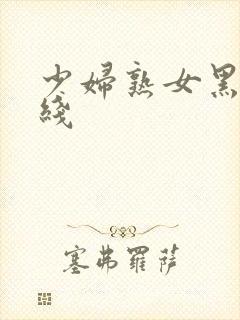 少婦熟女黑
綫
塞弗羅薩